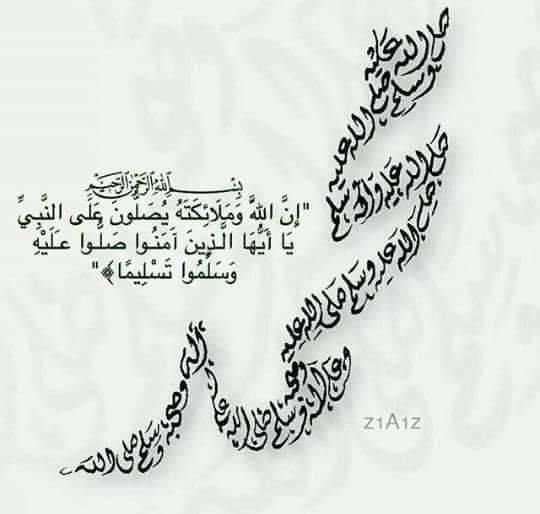 صلى الله عليه وسلم
صلى الله عليه وسلم
صلى الله عليه وآله
صلى الله عليه وسلم صلى الله عليه
بسم الله الرحمن الرحيم
"إِنَّ اللَّهَ وَمَلَائِكَتَهُ يُصَلُّونَ عَلَى النَّبِيِّ
يَا أَيُّهَا الَّذِينَ آمَنُوا صَلُّوا عَلَيْهِ
وَسَلِّمُوا تَسْلِيمًا﴾"
وعلى آله وصحبه وسلم صلى الله عليه
آله وصحبه وسلم صلى الله
z1A1z